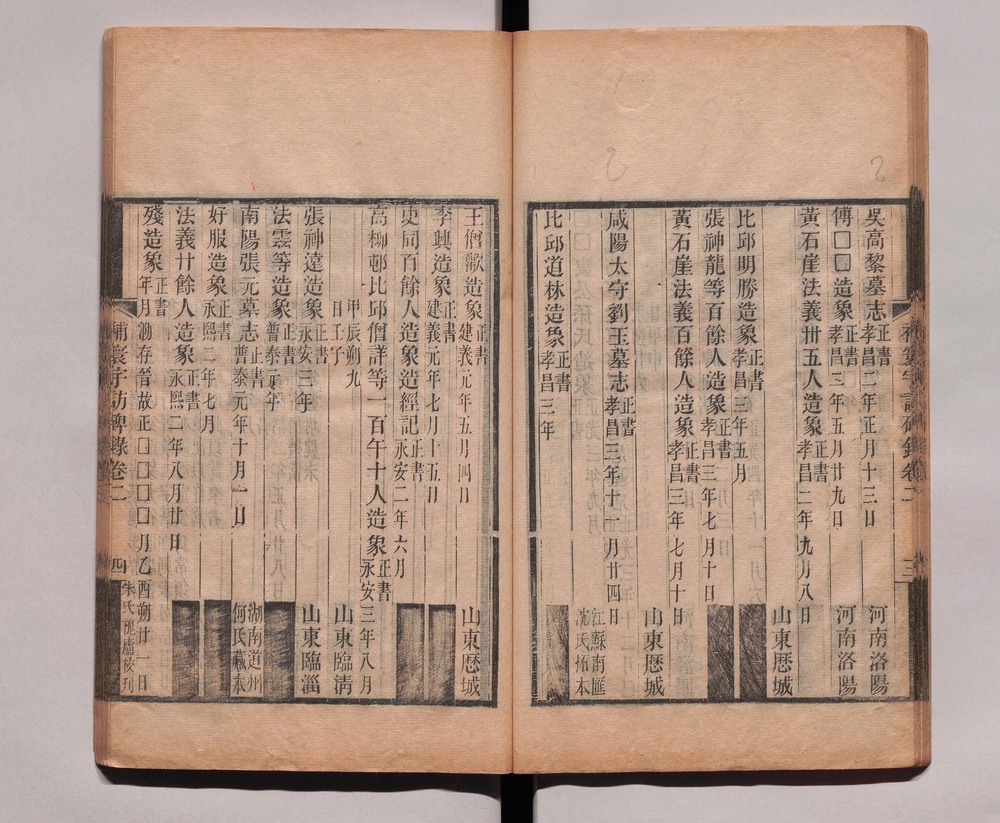 吳高黎墓志 正書 孝昌二年正月十三日 河南洛陽
傅□□造象 正書 孝昌二年五月廿九日 河南洛陽
黃石崖法義卅五人造象 正書 孝昌二年九月八日 山東歷城
比邱明勝造象 正書 孝昌三年五月
張神龍等百餘人造象 正書 孝昌三年七月十日
黃石崖法義百餘人造象 正書 孝昌三年七月十日 山東歷城
咸陽太守劉玉墓志 正書 孝昌三年十一月廿四日 江蘇南匯沈氏拓本
比邱道林造象 正書 孝昌三年
補寰宇訪碑錄卷二 三
王僧歡造象 正書 建義元年五月四日 山東歷城
李興造象 正書 建義元年七月十五日
吏同百餘人造象造經記 正書 永安二年六月
高柳邨比邱僧詳等一百午十人造象 正書 永安三年八月
甲辰朔九日壬子 山東臨清
張神遠造象 正書 永安三年 山東臨淄
法雲等造象 正書 普泰元年
南陽張元墓志 正書 普泰元年十月一日 湖南道州何氏藏本
好服造象 正書 永熙二年七月
法義廿餘人造象 正書 永熙二年八月廿日
殘造象 正書 年月泐存晉故正□□□□月乙酉朔廿一日
補寰宇訪碑錄卷二 四 朱氏槐廬校刊